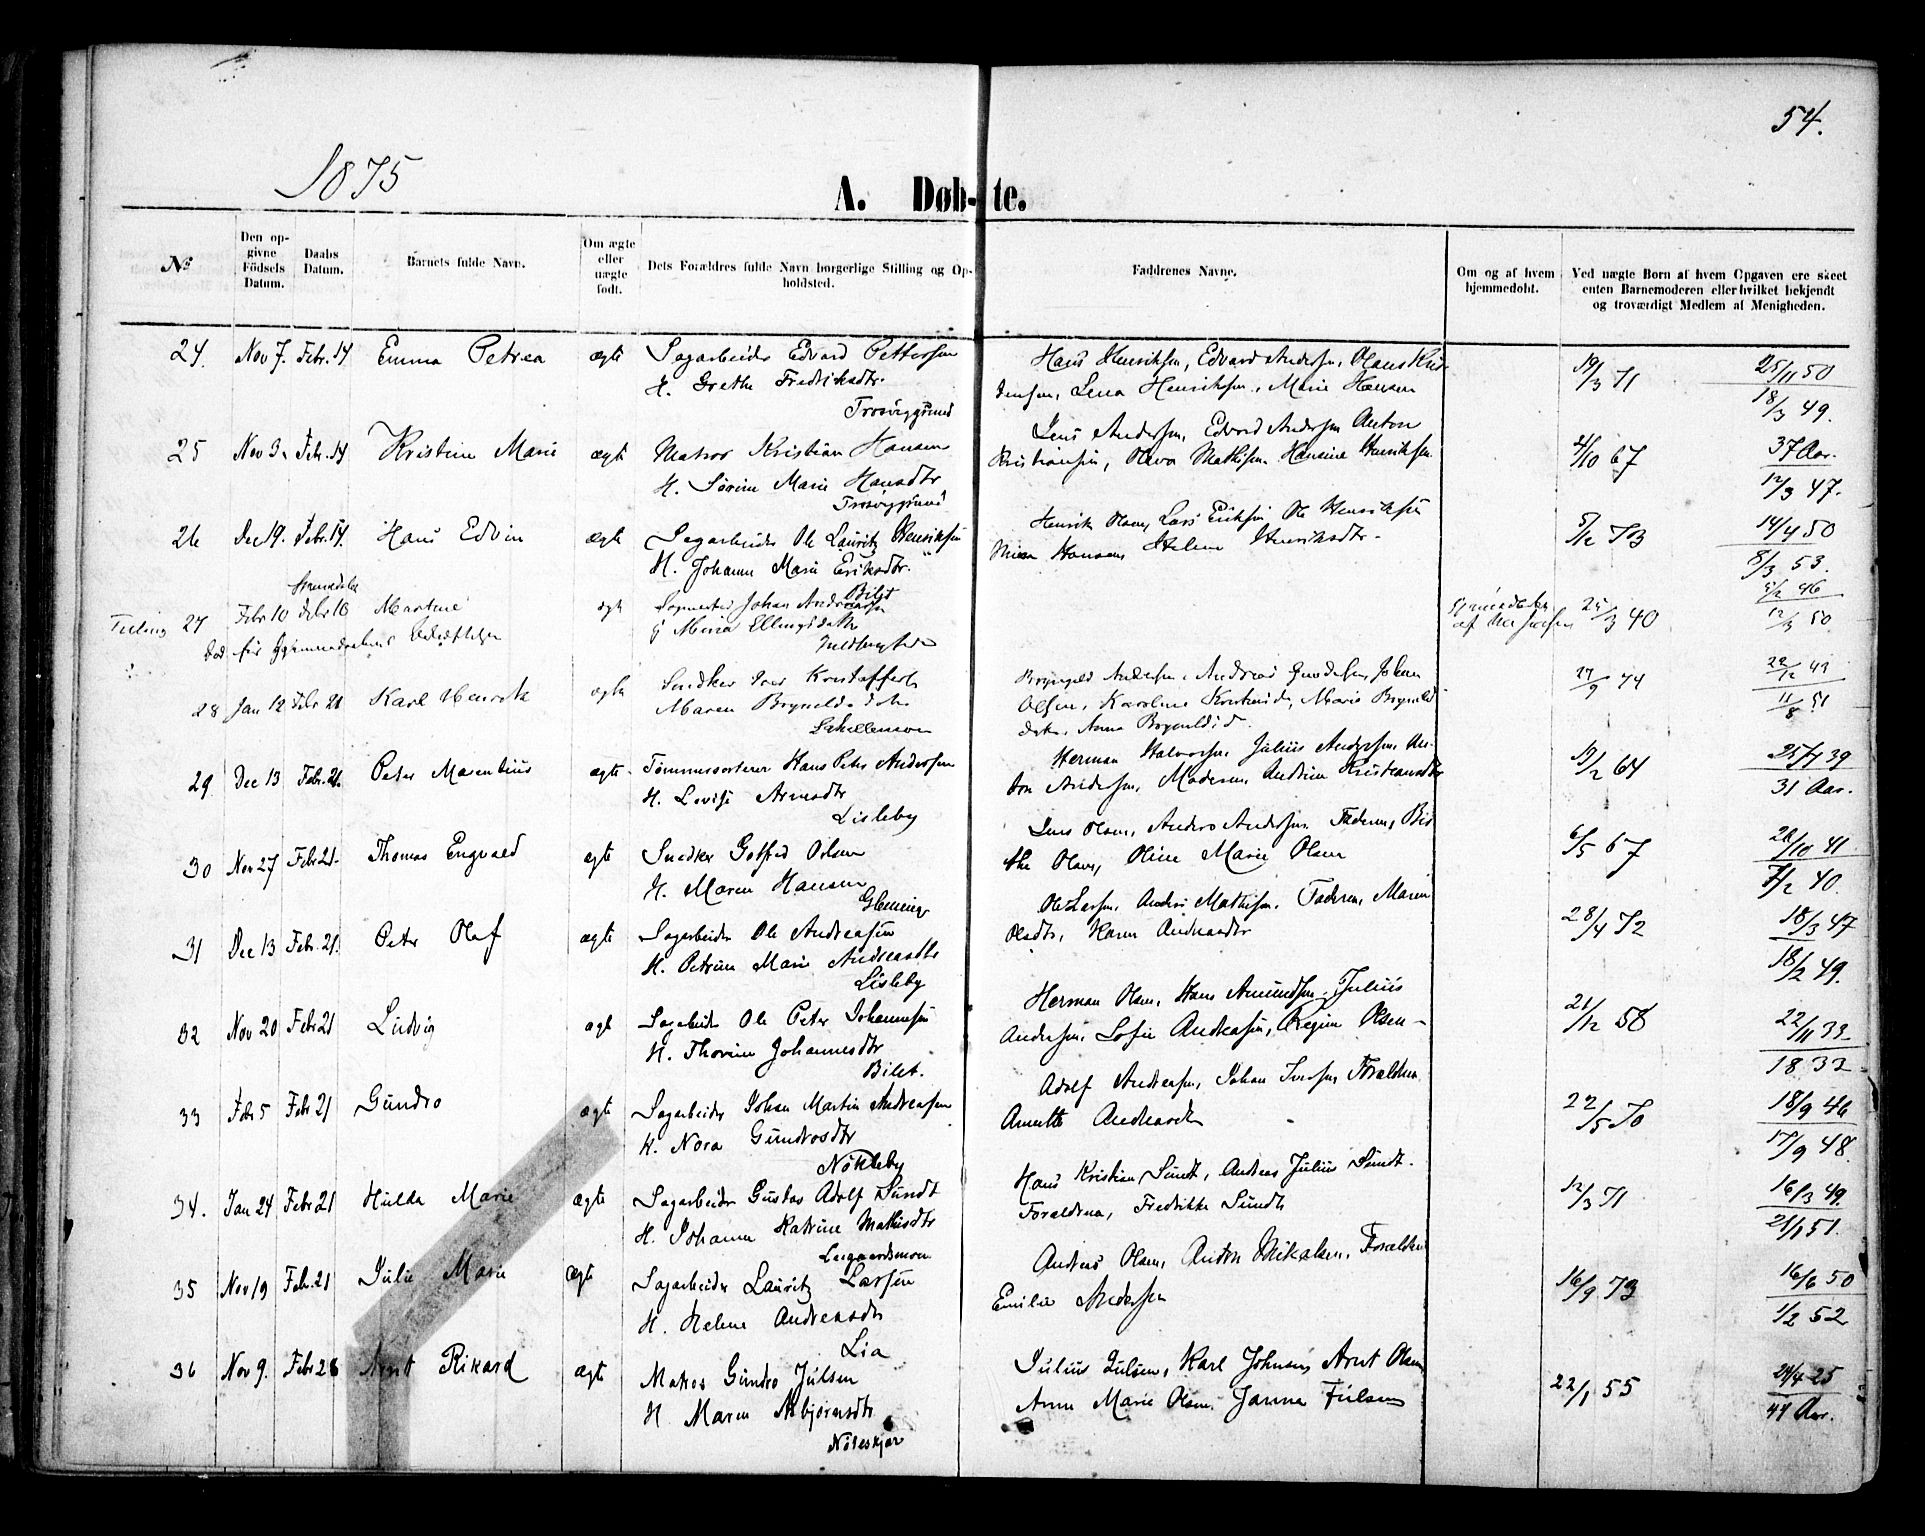 54.
1875
A. Døb- te.
№
Den opgivne Födsels Datum.
Daabs Datum.
Barnets fulde Navn.
Om ægte eller uægte født.
Dets Forældres fulde Navn borgerlige Stilling og Opholdsted.
Faddrenes Navne.
Om og af hvem hjemmedobt.
Ved uægte Born af hvem Opgaven ere skeet enten Barnemoderen eller hvilket bekjendt og troværdigt Medlem af Menigheden.
24. Nov 7. Febr. 14 Emma Petrea ægte Sagarbeider Edvard Pettersen Hans Henriksen, Edvard Andersen, Olaus Kris- 19/3 71 25/11 50
H. Grethe Fredriksdtr. densen, Lena Henriksen, Marie Hansen 18/3 49.
Trosvigsund
25 Nov 3. Feb. 14 Kristine Marie ægte Matros Kristian Hansen Jens Andersen, Edvard Andersen Anton 4/10 67 37 Aar.
H. Sörine Marie Hansdtr Kristiansen, Olava Mathisen Hansine Henriksen 12/3 47.
Trosvigsund
26 Dec 19. Febr. 14. Hans Edvin ægte Sagarbeider Ole Lauritz Henriksen Henrik Olsen, Lars Eriksen Ole Henriksen 5/12 73 14/4 50
H. Johanne Marie Eriksdtr. Hansen Helene Henriksdtr. 8/3 53.
Bilet
27 Febr 10 Febr 10 Martine ægte Johan Andreassen 25/3 40 5/2 46
Maria Ellingsdatter 12/3 50
28 Jan 12 Febr 21 Karl Henrik ægte Snedker Iver Kristoffersen Brynild Andersen, Andreas Johan 27/9 74 22/12 43
Maren Brynildsdatter Olsen, Karoline Marie Brynild- 11/8 51
datter, Anna Brynildsd.
29 Dec 13 Febr. 21. Peter Marentius ægte Tömmersorterer Hans Peter Andersen Herman Halvorsen, Julius Andersen An- 19/2 64 25/7 39
H. Lovise Arnesdtr ton Andersen, Moderen, Andrine Kristiansdtr 31 Aar.
Lisleby
30 Nov 27 Febr 21. Thomas Engvald ægte Snedker Gotfred Olsen Jens Olsen, Anders Andersen, Faderen, Ber- 6/5 67 28/10 41
H. Maren Hansen the Olsen, Oline Marie Olsen 7/2 40.
Glemminge
31 Dec 13 Febr. 21. Peter Olaf ægte Sagarbeider Ole Andreasen Ole Larsen, Anders Mathisen, Faderen, Maren 28/4 72 18/3 47
H. Petrine Marie Andreasdtr Olsdtr, Karen Andreasdtr 18/2 49.
Lisleby
32 Nov 20 Febr 21 Ludvig ægte Sagarbeider Ole Peter Johannesen Herman Olsen, Hans Amundsen, Julius 21/12 58 22/11 33
H. Thorine Johannesdtr Andersen, Sofie Andreasen, Regine Olsen 1833
Bilet.
33 Febr 5 Febr 21 Gundro ægte Sagarbeider Johan Martin Andreasen Adolf Andreasen, Johan Iversen Forældrene 22/5 70 18/9 46
H. Nora Gundrosdtr Anette Andreasdtr 17/9 48.
Nökleby
34. Jan 24 Febr 21 Hulda Marie ægte Sagarbeider Gustav Adolf Sundt Hans Kristian Sundt, Anders Julius Sundt. 12/3 71 16/3 49.
H. Johanne Katrine Mathisdtr Forældrene, Fredrikke Sundt 21/1 51.
Leigaardsmoen
35 Nov 19 Feb. 21 Julie Marie ægte Sagarbeider Lauritz Larsen Anders Olsen, Anton Mikalsen, Forældrene 16/9 73 16/6 50
H. Helene Andreasdtr Emilie Andersen 1/2 52
Lia
36 Nov 9. Febr 28 Arnt Rikard ægte Matros Gundro Julsen Julius Julsen, Karl Johnsen Arnt Olsen 22/1 55 24/4 25
H. Maren Asbjörnsdtr Anne Marie Olsen, Janna Julsen 47 Aar.